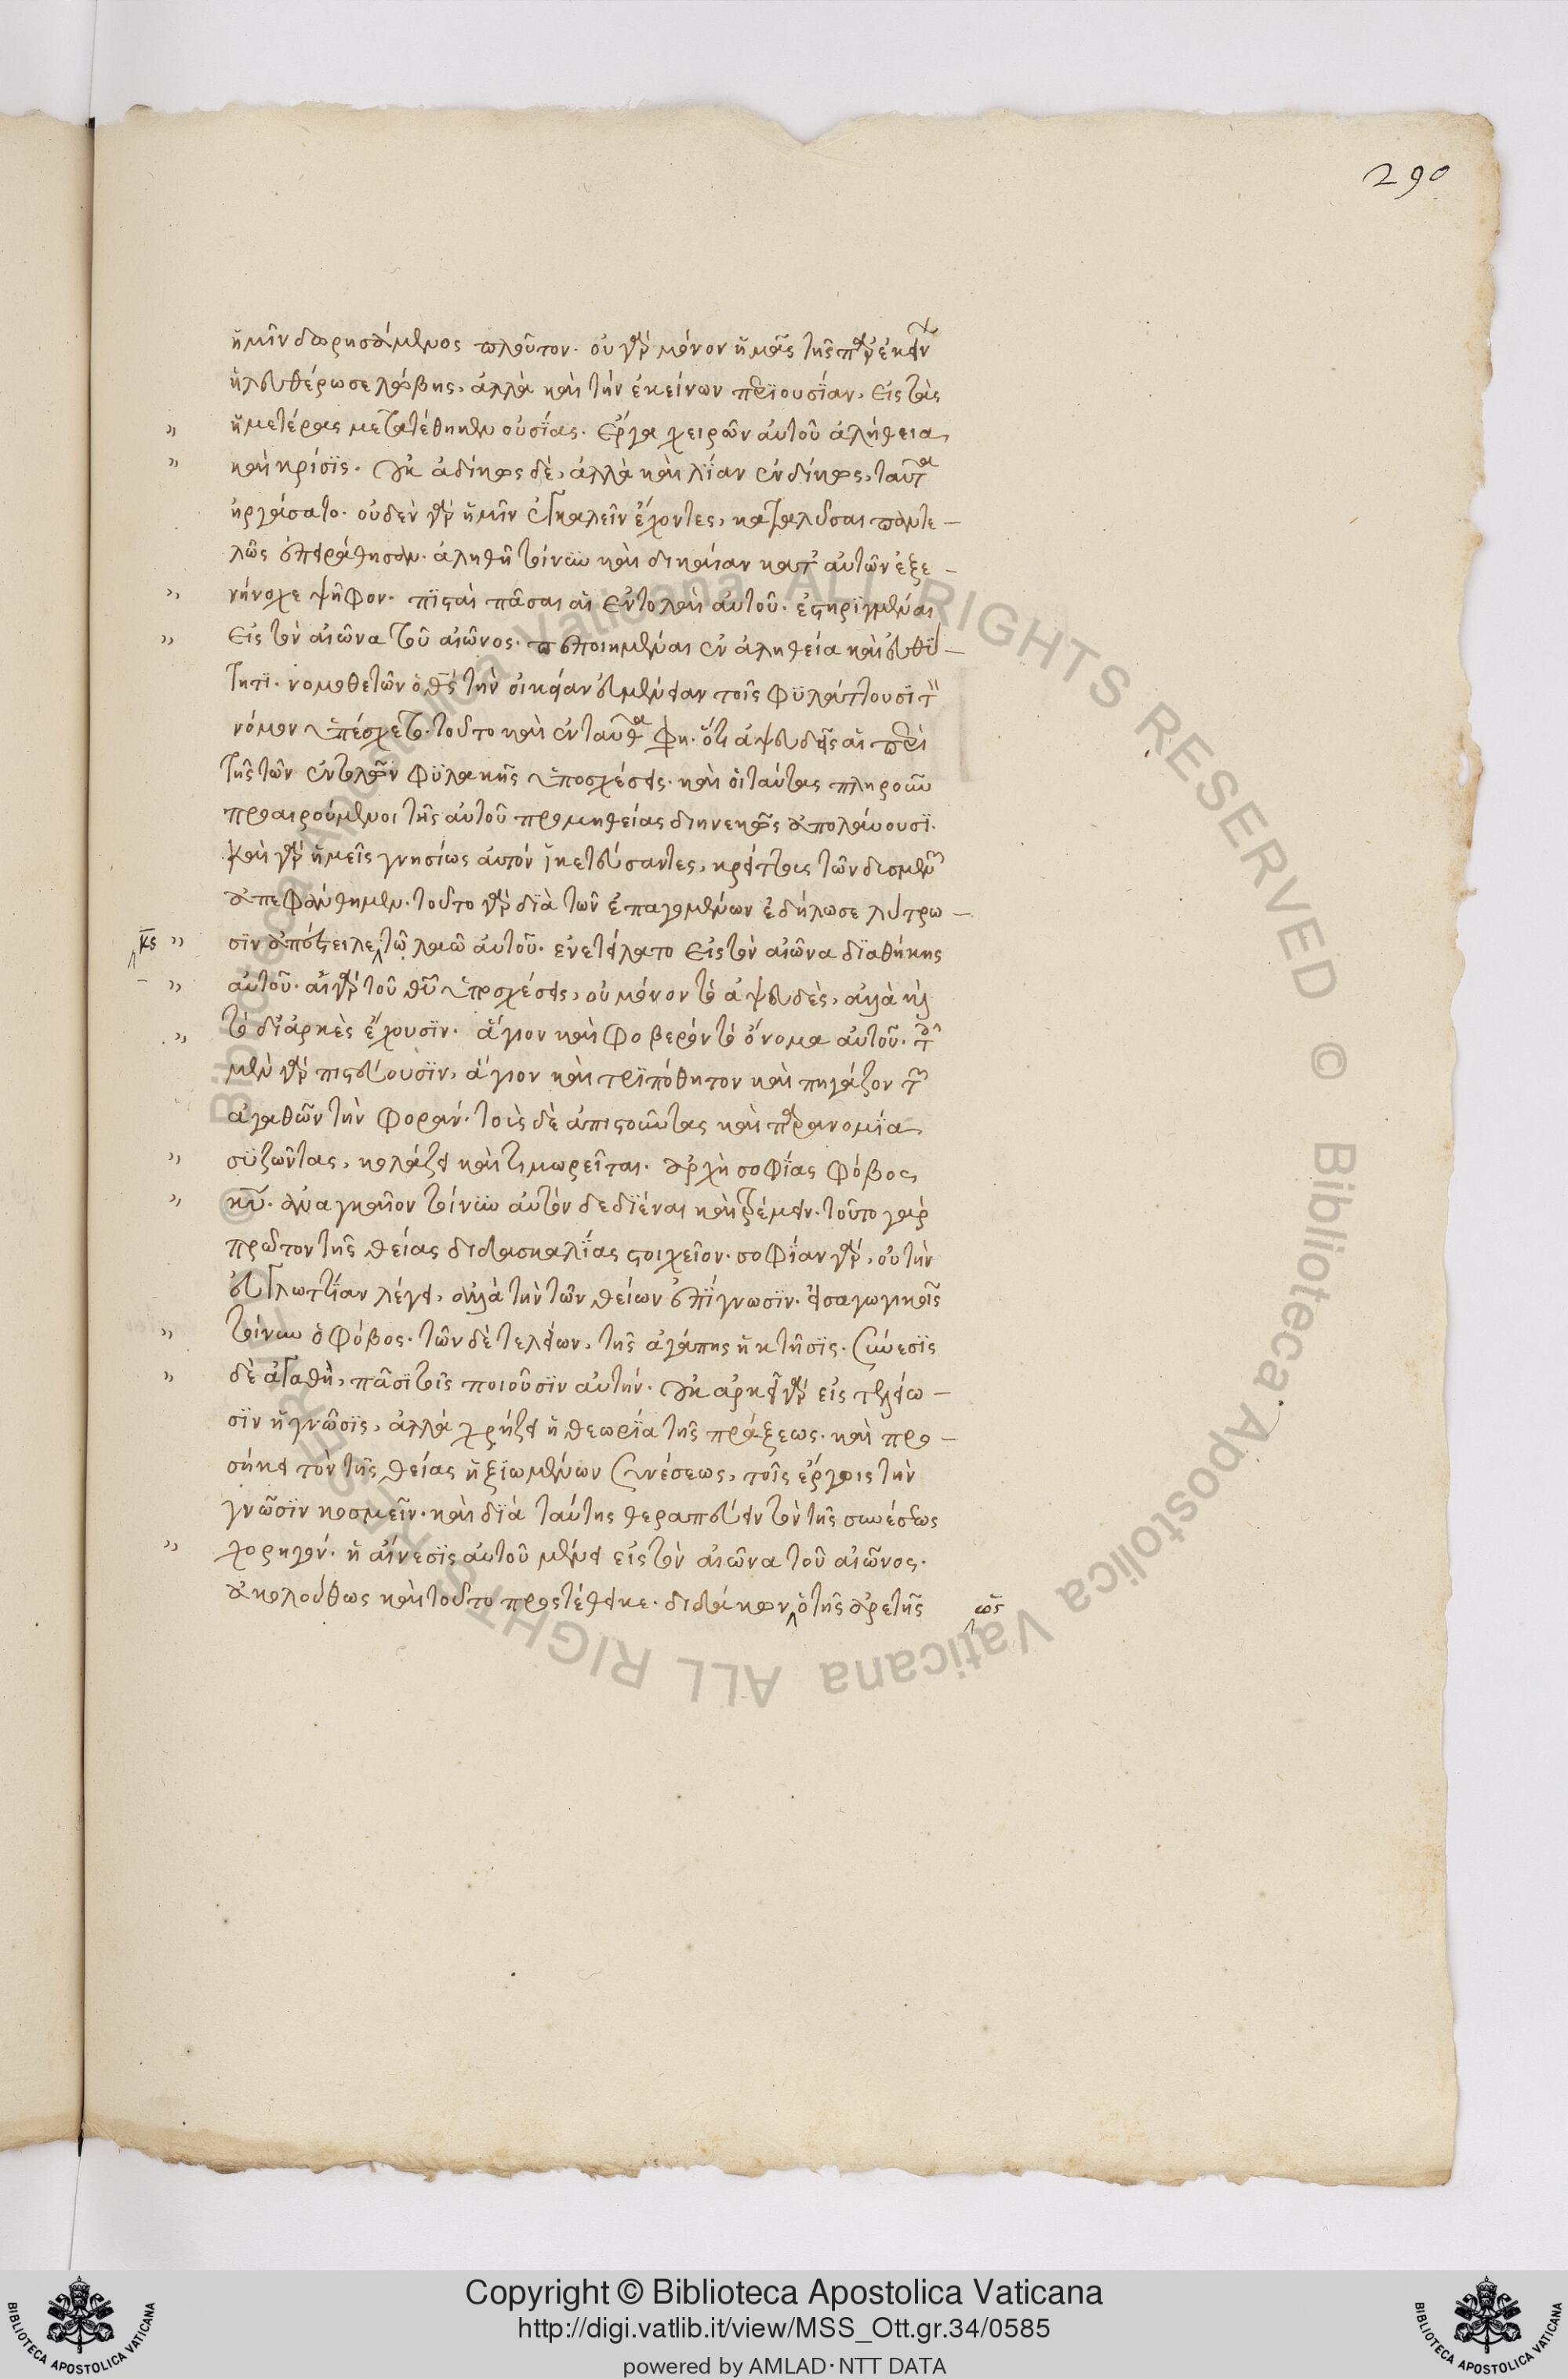 290
ἡμῖν δωρησάμενος πλοῦτον. οὐ γὰρ μόνον ἡμᾶς τῆς παρ' ἐκείνων
ἠλευθέρωσε λώβης, ἀλλὰ καὶ τὴν ἐκείνων περϊουσίαν, εἰς τὰς
" ἡμετέρας μετατέθηκεν οὐσίας. Ἔργα χειρῶν αὐτοῦ ἀλήθεια
" καὶ κρίσϊς. οὐκ ἀδίκως δὲ, ἀλλὰ καὶ λΐαν ἐνδίκως, ταῦτα
εἰργάσατο. οὐδὲν γὰρ ἡμῖν ἐγκαλεῖν ἔχοντες, καταλῦσαι παντε-
λῶς ἐπειράθησαν. ἀληθῆ τοίνυν καὶ δικαίαν κατ' αὐτῶν ἐξε-
" νήνοχε ψῆφον. πϊσταὶ πᾶσαι αἱ ἐντολαὶ αὐτοῦ. ἐστηριγμέναι
" Εἰς τὸν αἰῶνα τοῦ αἰῶνος. πεποιημέναι ἐν ἀληθεία καὶ εὐθύ-
τητϊ. νομοθετῶν ὁ θεός τὴν οἰκείαν εὐμένειαν τοῖς φϋλάττουσϊ τὸν
νόμον ὑπέσχετο. τοῦτο καὶ ἐνταῦθα φησὶν. ὅτι ἀψευδεῖς αἱ περὶ
τῆς τῶν ἐντολῶν φϋλακῆς ὑποσχέσεις. καὶ οἱ ταύτας πληροῦν
προαιρούμενοι τῆς αὐτοῦ προμηθείας διηνεκῶς ἀπολαύουσϊ.
καὶ γὰρ ἡμεῖς γνησίως αὐτόν ἱκετεύσαντες, κρείττους τῶν δυσμενῶν
ἀπεφάνθημεν. τοῦτο γὰρ δϊὰ τῶν ἐπαγομένων ἐδήλωσε λύτρω-
κς " σϊν ἀπέστειλε τῷ λαῶ αὐτοῦ. ἐνετείλατο εἰς τὸν αἰῶνα δϊαθήκης
" αὐτοῦ. αἱ γὰρ τοῦ θυ ὑποσχέσεις, οὐ μόνον τὸ ἀψευδὲς, ἀλλὰ καὶ
" τὸ δϊαρκὲς ἔχουσϊν. ἅγιον καὶ φοβερόν τὸ ὄνομα αὐτοῦ. τοῖς
μὲν γὰρ πιστεύουσϊν, ἅγιον καὶ τρϊπόθητον καὶ πηγάζον τῶν
ἀγαθῶν τὴν φοράν. τοὺς δὲ ἀπιστοῦντας καὶ παρανομϊα
" συζῶντας, κολάζει καὶ τιμωρεῖται. ἀρχὴ σοφΐας φόβος
" κυ. ἀναγκαῖον τοίνυν αὐτόν δεδϊέναι καὶ τρέμειν. τοῦτο γαρ
πρῶτον τῆς θείας διδασκαλΐας στοιχεῖον. σοφΐαν γὰρ, οὐ τὴν
εὐγλωττΐαν λέγει, ἀλλὰ τὴν τῶν θείων ἐπΐγνωσϊν. εἰσαγωγικὸς
" τοίνυν ὁ φόβος. τῶν δὲ τελείων, τῆς ἀγάπης ἡ κτῆσϊς. Σύνεσϊς
" δὲ ἀγαθὴ, πᾶσϊ τοῖς ποιοῦσϊν αὐτήν. οὐκ ἀρκεῖ γὰρ εἰς τελείω-
σϊν ἡ γνῶσϊς, ἀλλὰ χρήζει ἡ θεωρϊα τῆς πράξεως. καὶ προ-
σήκει τὸν τῆς θείας ἠξϊωμένων συνέσεως, τοῖς ἔργοις τὴν
γνῶσϊν κοσμεῖν. καὶ δϊὰ ταύτης θεραπεύειν τὸν τῆς συνέσεως
" χορηγόν. ἡ αἴνεσϊς αὐτοῦ μένει εἰς τὸν αἰῶνα τοῦ αἰῶνος.
ἀκολούθως καὶ τοῦτο προστέθεικε. διδάσκων ὁ τῆς ἀρετῆς ὡς
Copyright © Biblioteca Apostolica Vaticana
http://digi.vatlib.it/view/MSS_Ott.gr.34/0585
powered by AMLAD·NTT DATA